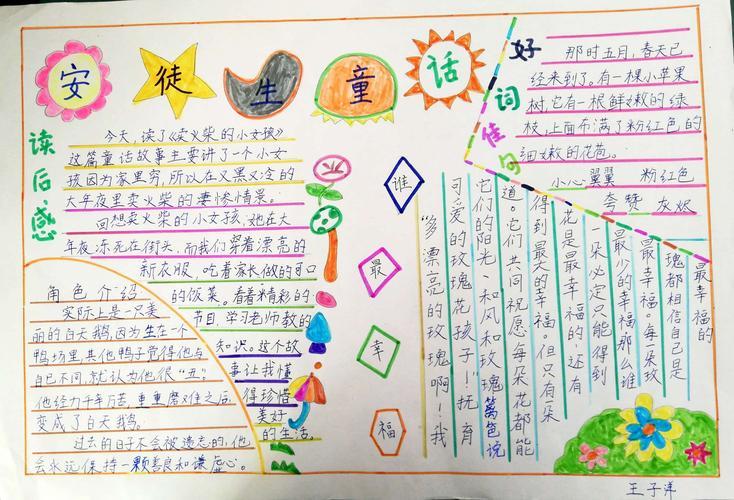 安徒生童话
读后感
今天,读了《卖火柴的小女孩》
这篇童话故事主要讲了一个小女
孩因为家里穷,所以在又黑又冷的
大年夜里卖火柴的凄惨情景。
回想卖火柴的小女孩,她在大
年夜冻死在街头,而我们穿着漂亮的
新衣服,吃着家长做的可口
的饭菜。看着精彩的
节目,学习老师教的
知识。这个故
事让我懂
得珍惜
美好
的生活。
角色介绍
实际上是一只美
丽的白天鹅,因为生在一个
鸭场里,其他鸭子觉得他与
自己不同,就认为他很“丑”。
他经力千年万苦、重重磨难之后
变成了白天鹅。
过去的日子不会被遗忘的,他
会永远保持一颗善良和谦虚心。
好词佳句
那时五月,春天已
经来到了。有一棵小苹果
树,它有一根鲜嫩的绿
枝,上面布满了粉红色的
细嫩的花苞。
小心翼翼 粉红色
夸赞 灰烬
谁最幸福
“多漂亮的玫瑰啊!我
可爱的玫瑰花孩子!”抚育
它们的阳光、和风和玫瑰篱笆说
道。它们共同祝愿每朵花都能
得到最大的幸福。但只有朵
花是最幸福的,还有
一朵必定只能得到
最少的幸福,那么谁
最幸福。每朵玫
瑰都相信自己是
最幸福的
王子洋